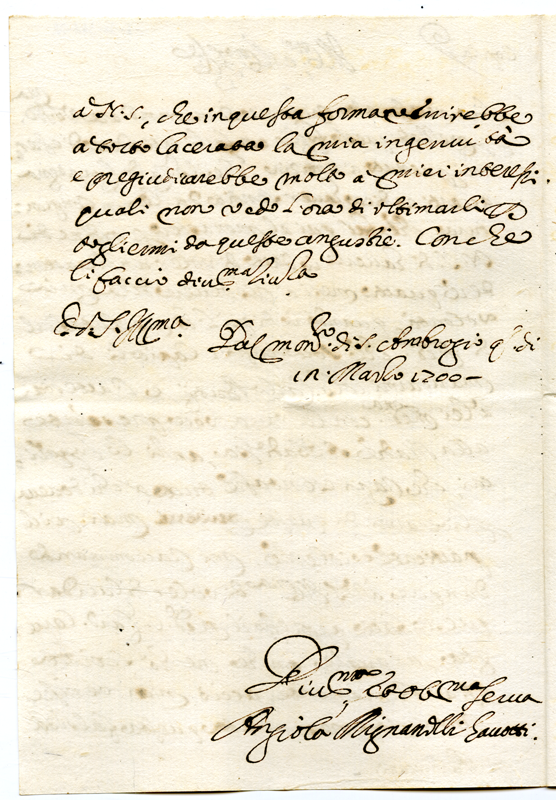 a N. S., che in questa forma venirebbe
a torto lacerata la mia ingenuità
e pregiudicarebbe molto a miei interessi.
quali non vedo l'ora di ultimarli P
togliermi da queste angustie. Con che
li faccio div.ma
D. V. S. Ill.ma
Dal mon.ro di S. Ambrogio q.o di
Marzo 1700 -
Div.ma et Ob.ma Serva
Angiola Mignanelli Savotti.